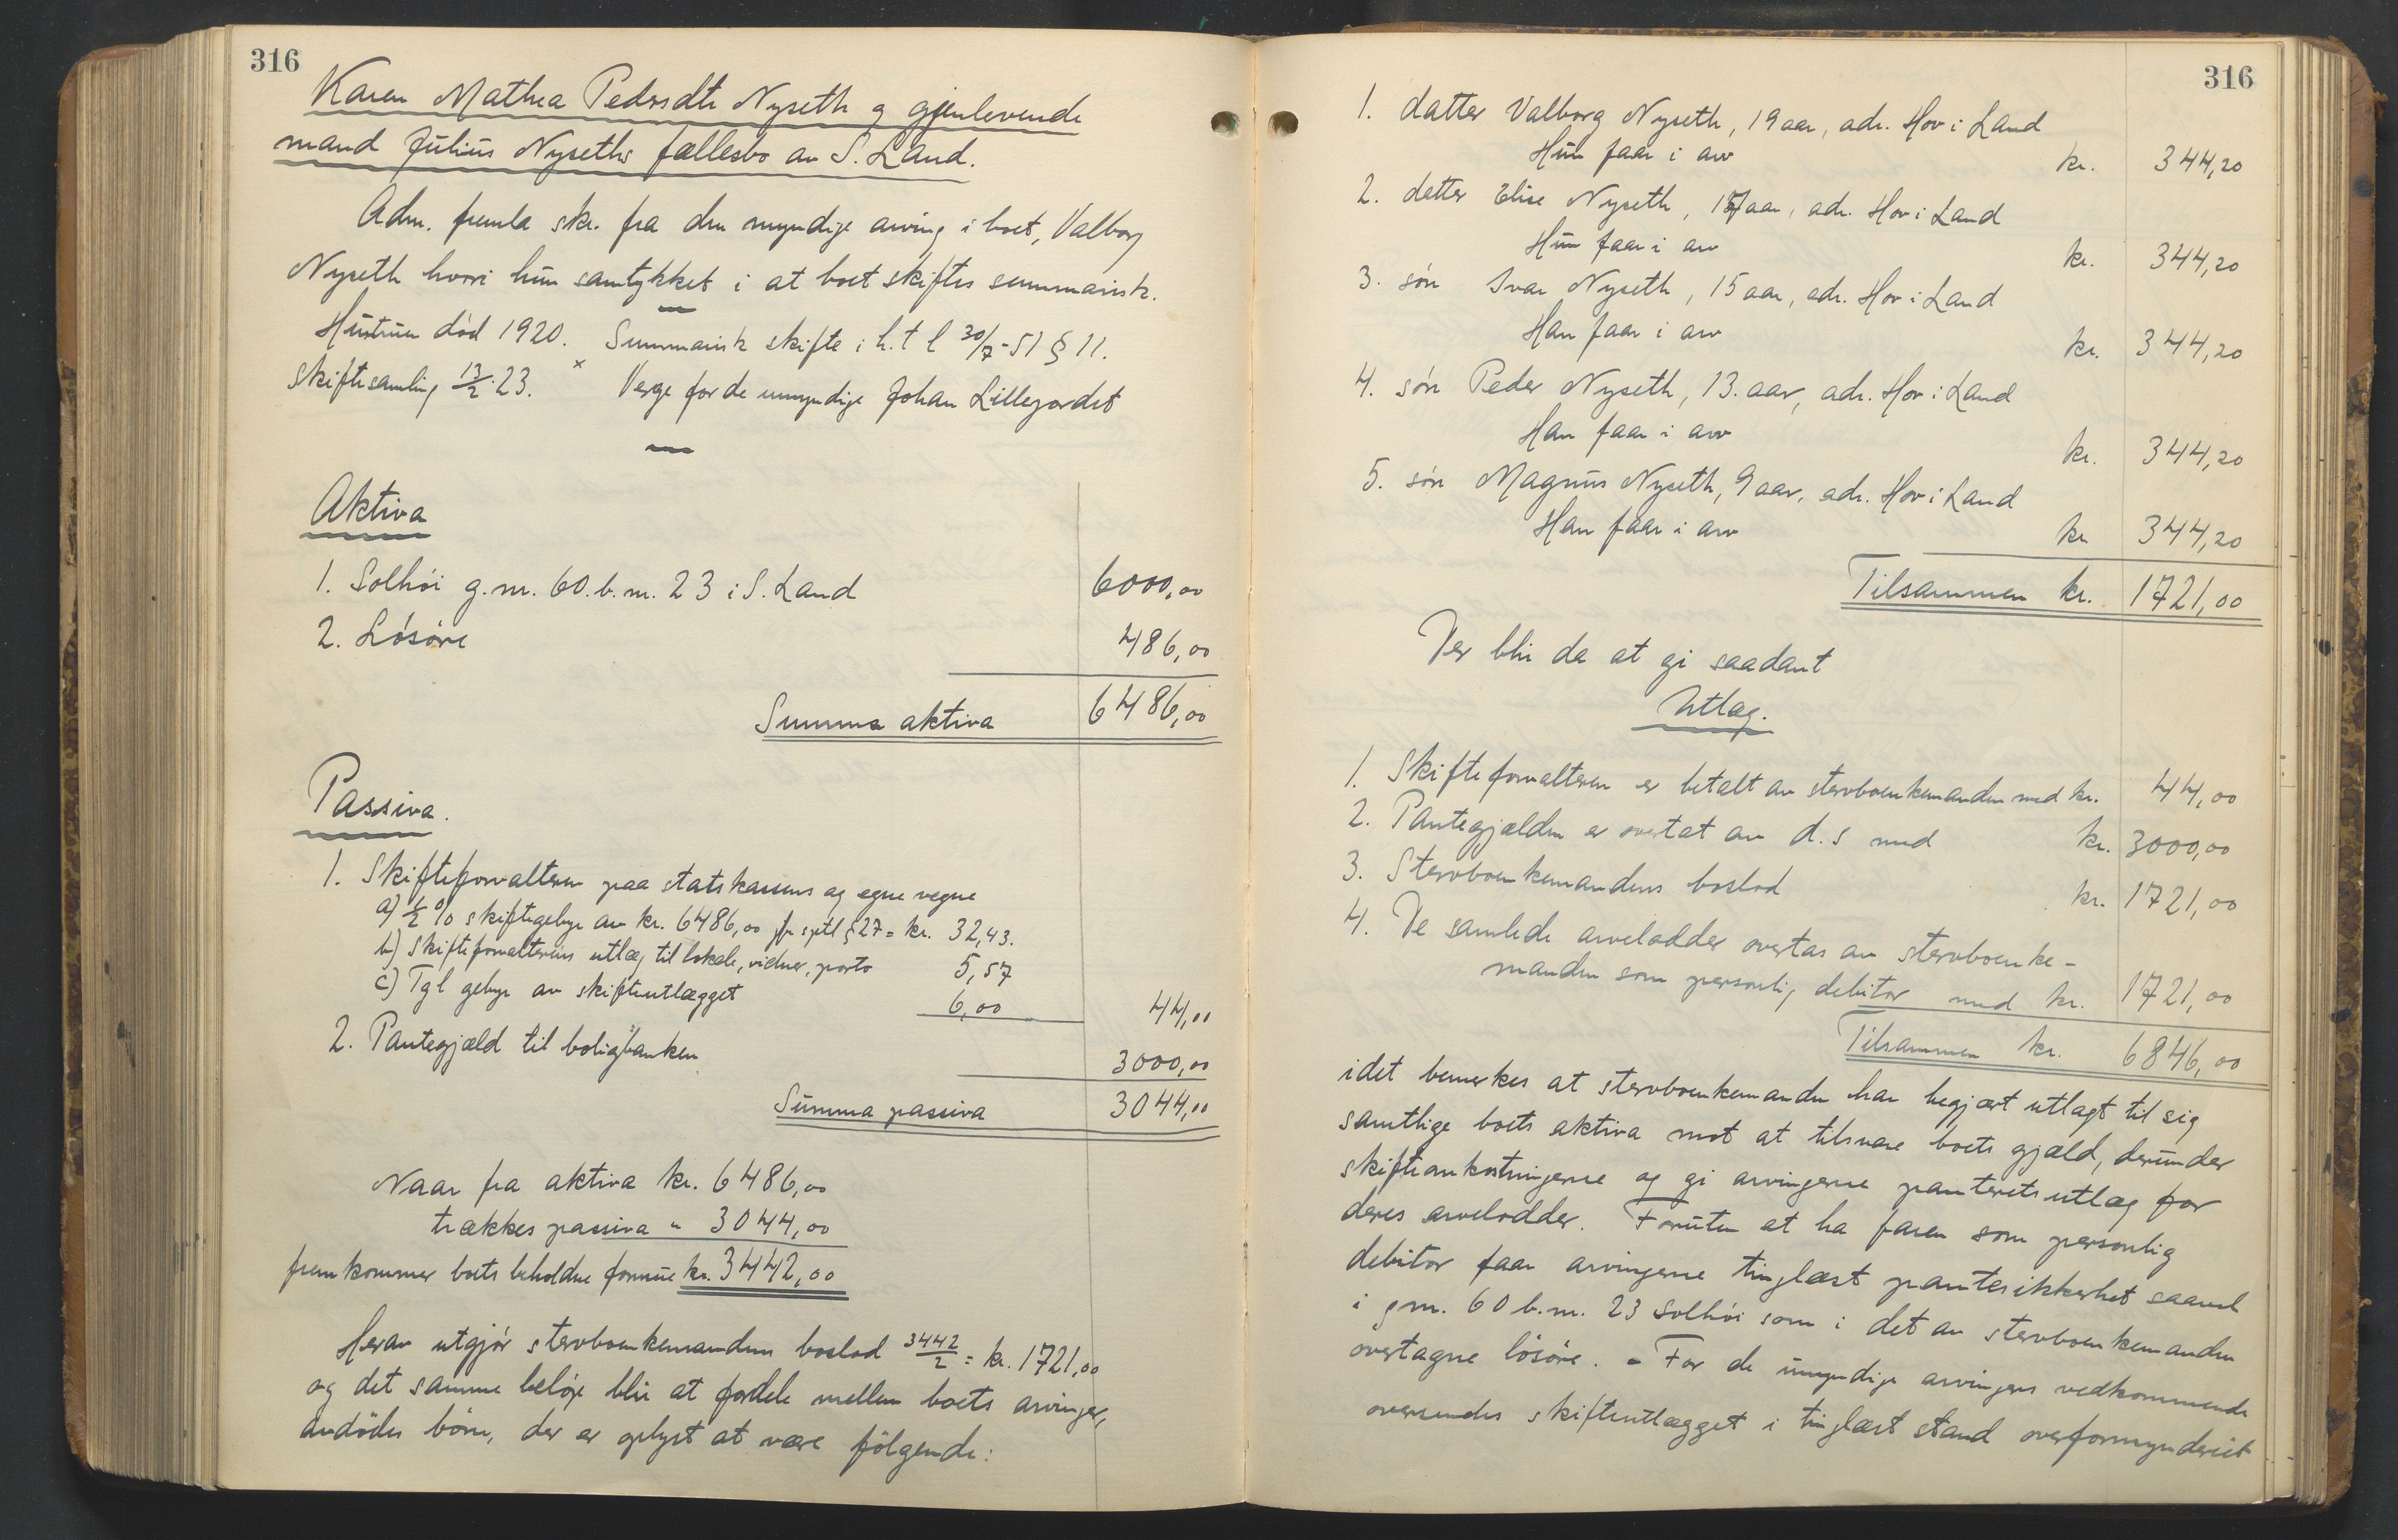 316
Karen Mathea Pedersdtr Nyseth og gjenlevende
mand Julius Nyseths fællesbo av S. Land.
Adm. fremla skr. fra den myndige arving i boet, Valborg
Nyseth hvori hun samtykket i at boet skiftes summarisk.
Hustruen död 1920. Summarisk skifte i h. t l 30/7-51 § 11.
Skiftesamling 13/2 23. × Verge for de umyndige Johan Lillejordet
Aktiva
1. Solhöi g.nr. 60. b.nr. 23 i S. Land 6000,00
2. Lösöre 486,00
Summa aktiva 6486,00
Passiva.
1. Skifteforvalteren paa statskassens og egne vegne
a) ½ % skiftegebyr av kr. 6486,00 jfr sptl § 27 = kr. 32,43.
b) Skifteforvalterens utlæg til lokale, vidner, porto 5,57
c) Tgl gebyr av skifteutlægget 6,00 44,00
2. Pantegjæld til boligbanken 3000,00
Summa passiva 3044,00
Naar fra aktiva kr. 6486,00
trækkes passiva " 3044,00
fremkommer boets beholdne formue kr. 3442,00
Herav utgjör stervboenkemandens boslod 3442/2 = kr. 1721,00
og det samme belöp blir at fordele mellem boets arvinger,
avdödes börn, der er oplyst at være fölgende:
316
1. datter Valborg Nyseth, 19 aar, adr. Hov i Land
Hun faar i arv kr. 344,20
2. datter Elise Nyseth, 17 aar, adr. Hov i Land
Hun faar i arv kr. 344,20
3. sön Ivar Nyseth, 15 aar, adr. Hov i Land
Han faar i arv kr. 344,20
4. sön Peder Nyseth, 13. aar, adr. Hov i Land
Han faar i arv kr. 344,20
5. sön Magnus Nyseth, 9 aar, adr. Hov i Land
Han faar i arv kr 344,20
Tilsammen kr. 1721,00
Der blir da at gi saadant
Utlæg.
1. Skifteforvalteren er betalt av stervboenkemanden med kr. 44,00
2. Pantegjælden er overtat av d.s med kr. 3000,00
3. Stervboenkemandens boslod kr. 1721,00
4. De samlede arvelodder overtas av stervboenke-
manden som personlig debitor med kr. 1721,00
Tilsammen kr. 6846,00
idet bemerkes at stervboenkemanden har begjært utlagt til sig
samtlige boets aktiva mot at tilsvare boets gjæld, derunder
skifteomkostningerne og gi arvingerne panteretsutlæg for
deres arvelodder. Foruten at ha faren som personlig
debitor faar arvingerne tinglæst pantesikkerhet saavel
i gnr. 60 b.nr. 23 Solhöi som i det av stervboenkemanden
overtagne lösöre. - For de umyndige arvingers vedkommende
oversendes skifteutlægget i tinglæst stand overformynderiet